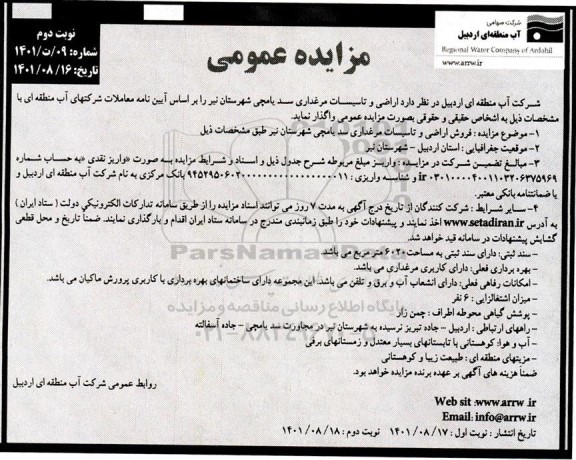 شرکت سهامی
آب منطقه‌ای اردبیل
Regional Water Company of Ardabil
www.arrw.ir
مزایده عمومی
نوبت دوم
شماره: ۰۹/ت/۱۴۰۱
تاریخ: ۱۴۰۱/۰۸/۱۶
شرکت آب منطقه ای اردبیل در نظر دارد اراضی و تاسیسات مرغداری سد یامچی شهرستان نیر را بر اساس آیین نامه معاملات شرکتهای آب منطقه ای با
مشخصات ذیل به اشخاص حقیقی و حقوقی بصورت مزایده عمومی واگذار نماید.
۱- موضوع مزایده : فروش اراضی و تاسیسات مرغداری سد یامچی شهرستان نیر طبق مشخصات ذیل
۲- موقعیت جغرافیایی : استان اردبیل - شهرستان نیر
۳- مبالغ تضمین شرکت در مزایده : واریز مبلغ مربوطه شرح جدول ذیل و اسناد و شرایط مزایده به صورت «واریز نقدی «به حساب شماره
ir ۰۳۰۱۰۰۰۰۴۰۰۱۱۰۳۲۰۶۳۷۵۹۶۹ و شناسه واریزی : بانک مرکزی به نام شرکت آب منطقه ای اردبیل و
یا ضمانتنامه بانکی معتبر.
۴- سایر شرایط : شرکت کنندگان از تاریخ درج آگهی به مدت ۷ روز می توانند اسناد مزایده را از طریق سامانه تدارکات الکترونیکی دولت ( ستاد ایران )
به آدرس www.setadiran.ir اخذ نمایند و پیشنهادات خود را طبق زمانبندی مندرج در سامانه ستاد ایران اقدام و بارگذاری نمایند. ضمناً تاریخ و محل قطعی
گشایش پیشنهادات در سامانه قید خواهد شد.
- سند ثبتی: دارای سند ثبتی به مساحت ۶۰۲۰ متر مربع می باشد
- بهره برداری فعلی: دارای کاربری مرغداری می باشد.
- امکانات رفاهی فعلی: دارای انشعاب آب و برق و تلفن می باشد. این مجموعه دارای ساختمانهای بهره برداری با کاربری پرورش ماکیان می باشد.
- میزان اشتغالزایی : ۶ نفر
- پوشش گیاهی محوطه اطراف : چمن زار
- راههای ارتباطی : اردبیل - جاده تبریز نرسیده به شهرستان نیر در مجاورت سد یامچی - جاده آسفالته
- آب و هوا: کوهستانی با تابستانهای بسیار معتدل و زمستانهای برفی
- مزیتهای منطقه ای : طبیعت زیبا و کوهستانی
ضمناً هزینه های آگهی بر عهده برنده مزایده خواهد بود.
روابط عمومی شرکت آب منطقه ای اردبیل
Web sit :www.arrw .ir
Email: info@arrw.ir
تاریخ انتشار : نوبت اول : ۱۴۰۱/۰۸/۱۷ نوبت دوم : ۱۴۰۱/۰۸/۱۸
ParsNamadData
پایگاه اطلاع رسانی مناقصه و مزایده